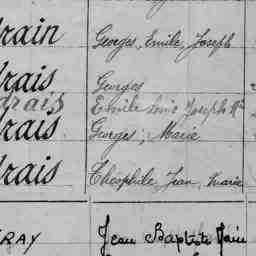 drain Georges, Emile, Joseph
drais Georges
drais Emile Louis Joseph Mie
drais Georges, Marie
drais Théophile Jean Marie
RAY Jean Baptiste Marie